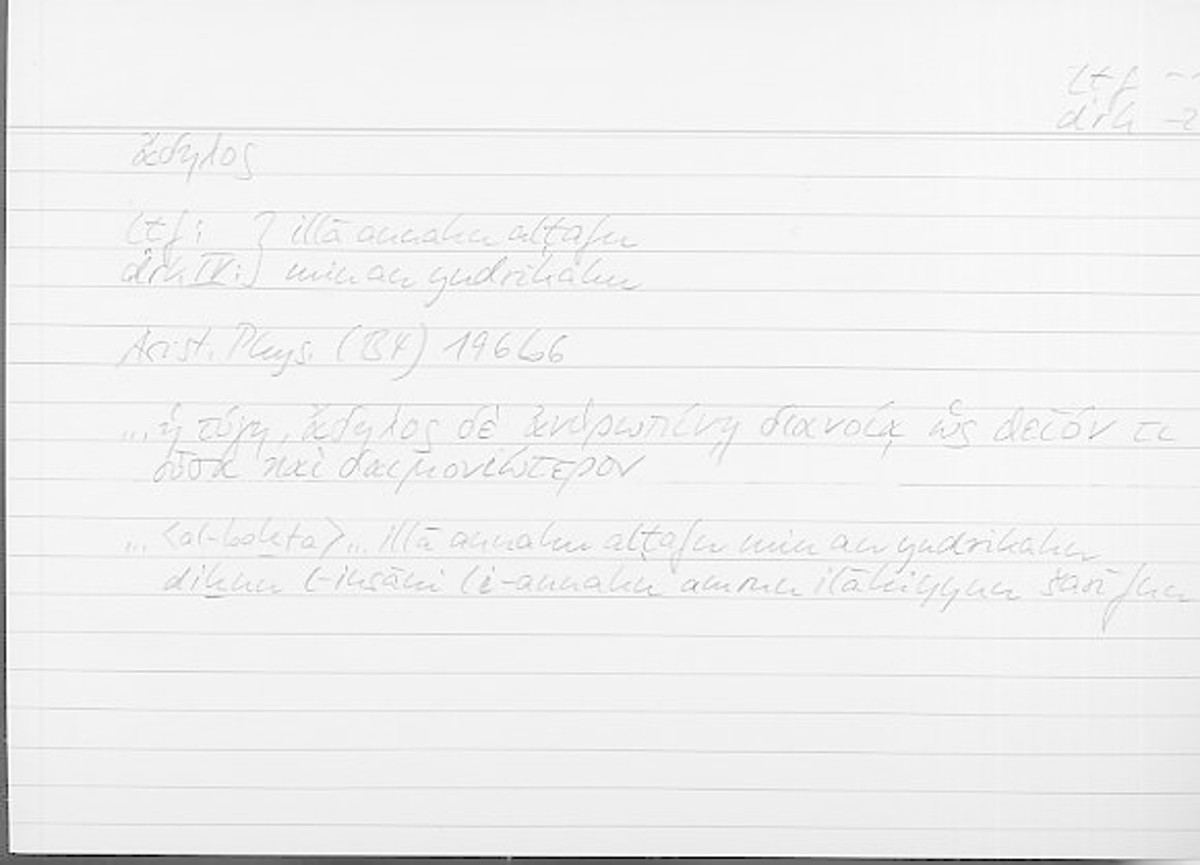 lṭf
drk
ἄδηλος
lṭf: } illā annahu alṭafu
drk IV: } min an yudrikahu
Arist. Phys. (B4) 196b6
... ἡ τύχη, ἄδηλος δὲ ἀνθρωπίνῃ διανοίᾳ ὡς θεῖόν τι
οὖσα καὶ δαιμονιώτερον
... <al-baḫta> ... illā annahu alṭafu min an yudrikahu
ḏihnu l-insāni li-annahu amrun ilāhiyyun šarīfun